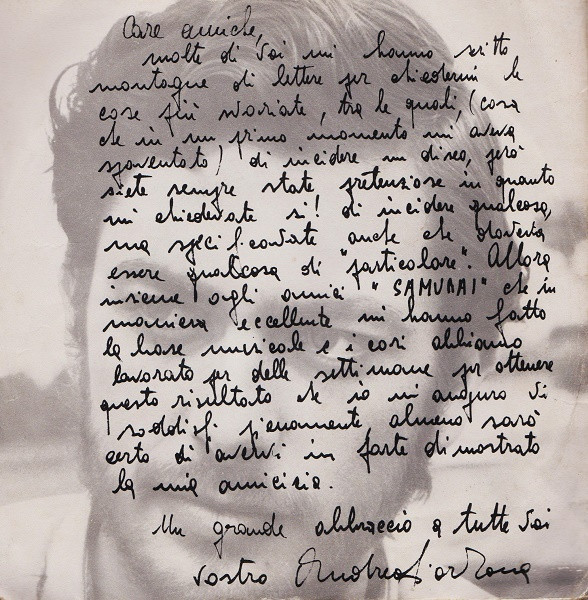 Care amiche,
molte di Voi mi hanno scritto
montagne di lettere per chiedermi le
cose più svariate, tra le quali, (cosa
che in un primo momento mi aveva
spaventato) di incidere un disco, però
siete sempre state pretenziose in quanto
mi chiedevate si! di incidere qualcosa,
ma specificavate anche che doveva
essere qualcosa di "particolare". Allora
insieme agli amici "SAMURAI" che in
maniera eccellente mi hanno fatto
la base musicale e i cori abbiamo
lavorato per delle settimane per ottenere
questo risultato che io mi auguro Vi
soddisfi pienamente, almeno sarò
certo di avervi in parte dimostrato
la mia amicizia.
Un grande abbraccio a tutte Voi
vostro Andrea